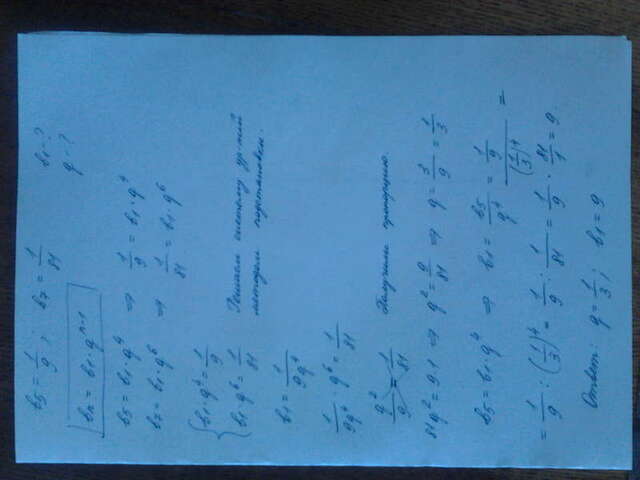 b5 = 1/9, b7 = 1/81 b1 - ?
q - ?
bn = b1 · q^n-1
b5 = b1 · q^4 ⇒ 1/9 = b1 · q^4
b7 = b1 · q^6 ⇒ 1/81 = b1 · q^6
{ b1 · q^4 = 1/9
{ b1 · q^6 = 1/81
Решаем систему ур-ний
методом подстановки.
b1 = 1/9q^4
1/9q^4 · q^6 = 1/81
q^2/9 = 1/81 Получили пропорцию.
81q^2 = 9·1 ⇒ q^2 = 9/81 ⇒ q = 3/9 = 1/3
b5 = b1 · q^4 ⇒ b1 = b5/q^4 = 1/9/(1/3)^4 =
= 1/9 : (1/3)^4 = 1/9 : 1/81 = 1/9 · 81/1 = 9.
Ответ: q = 1/3; b1 = 9